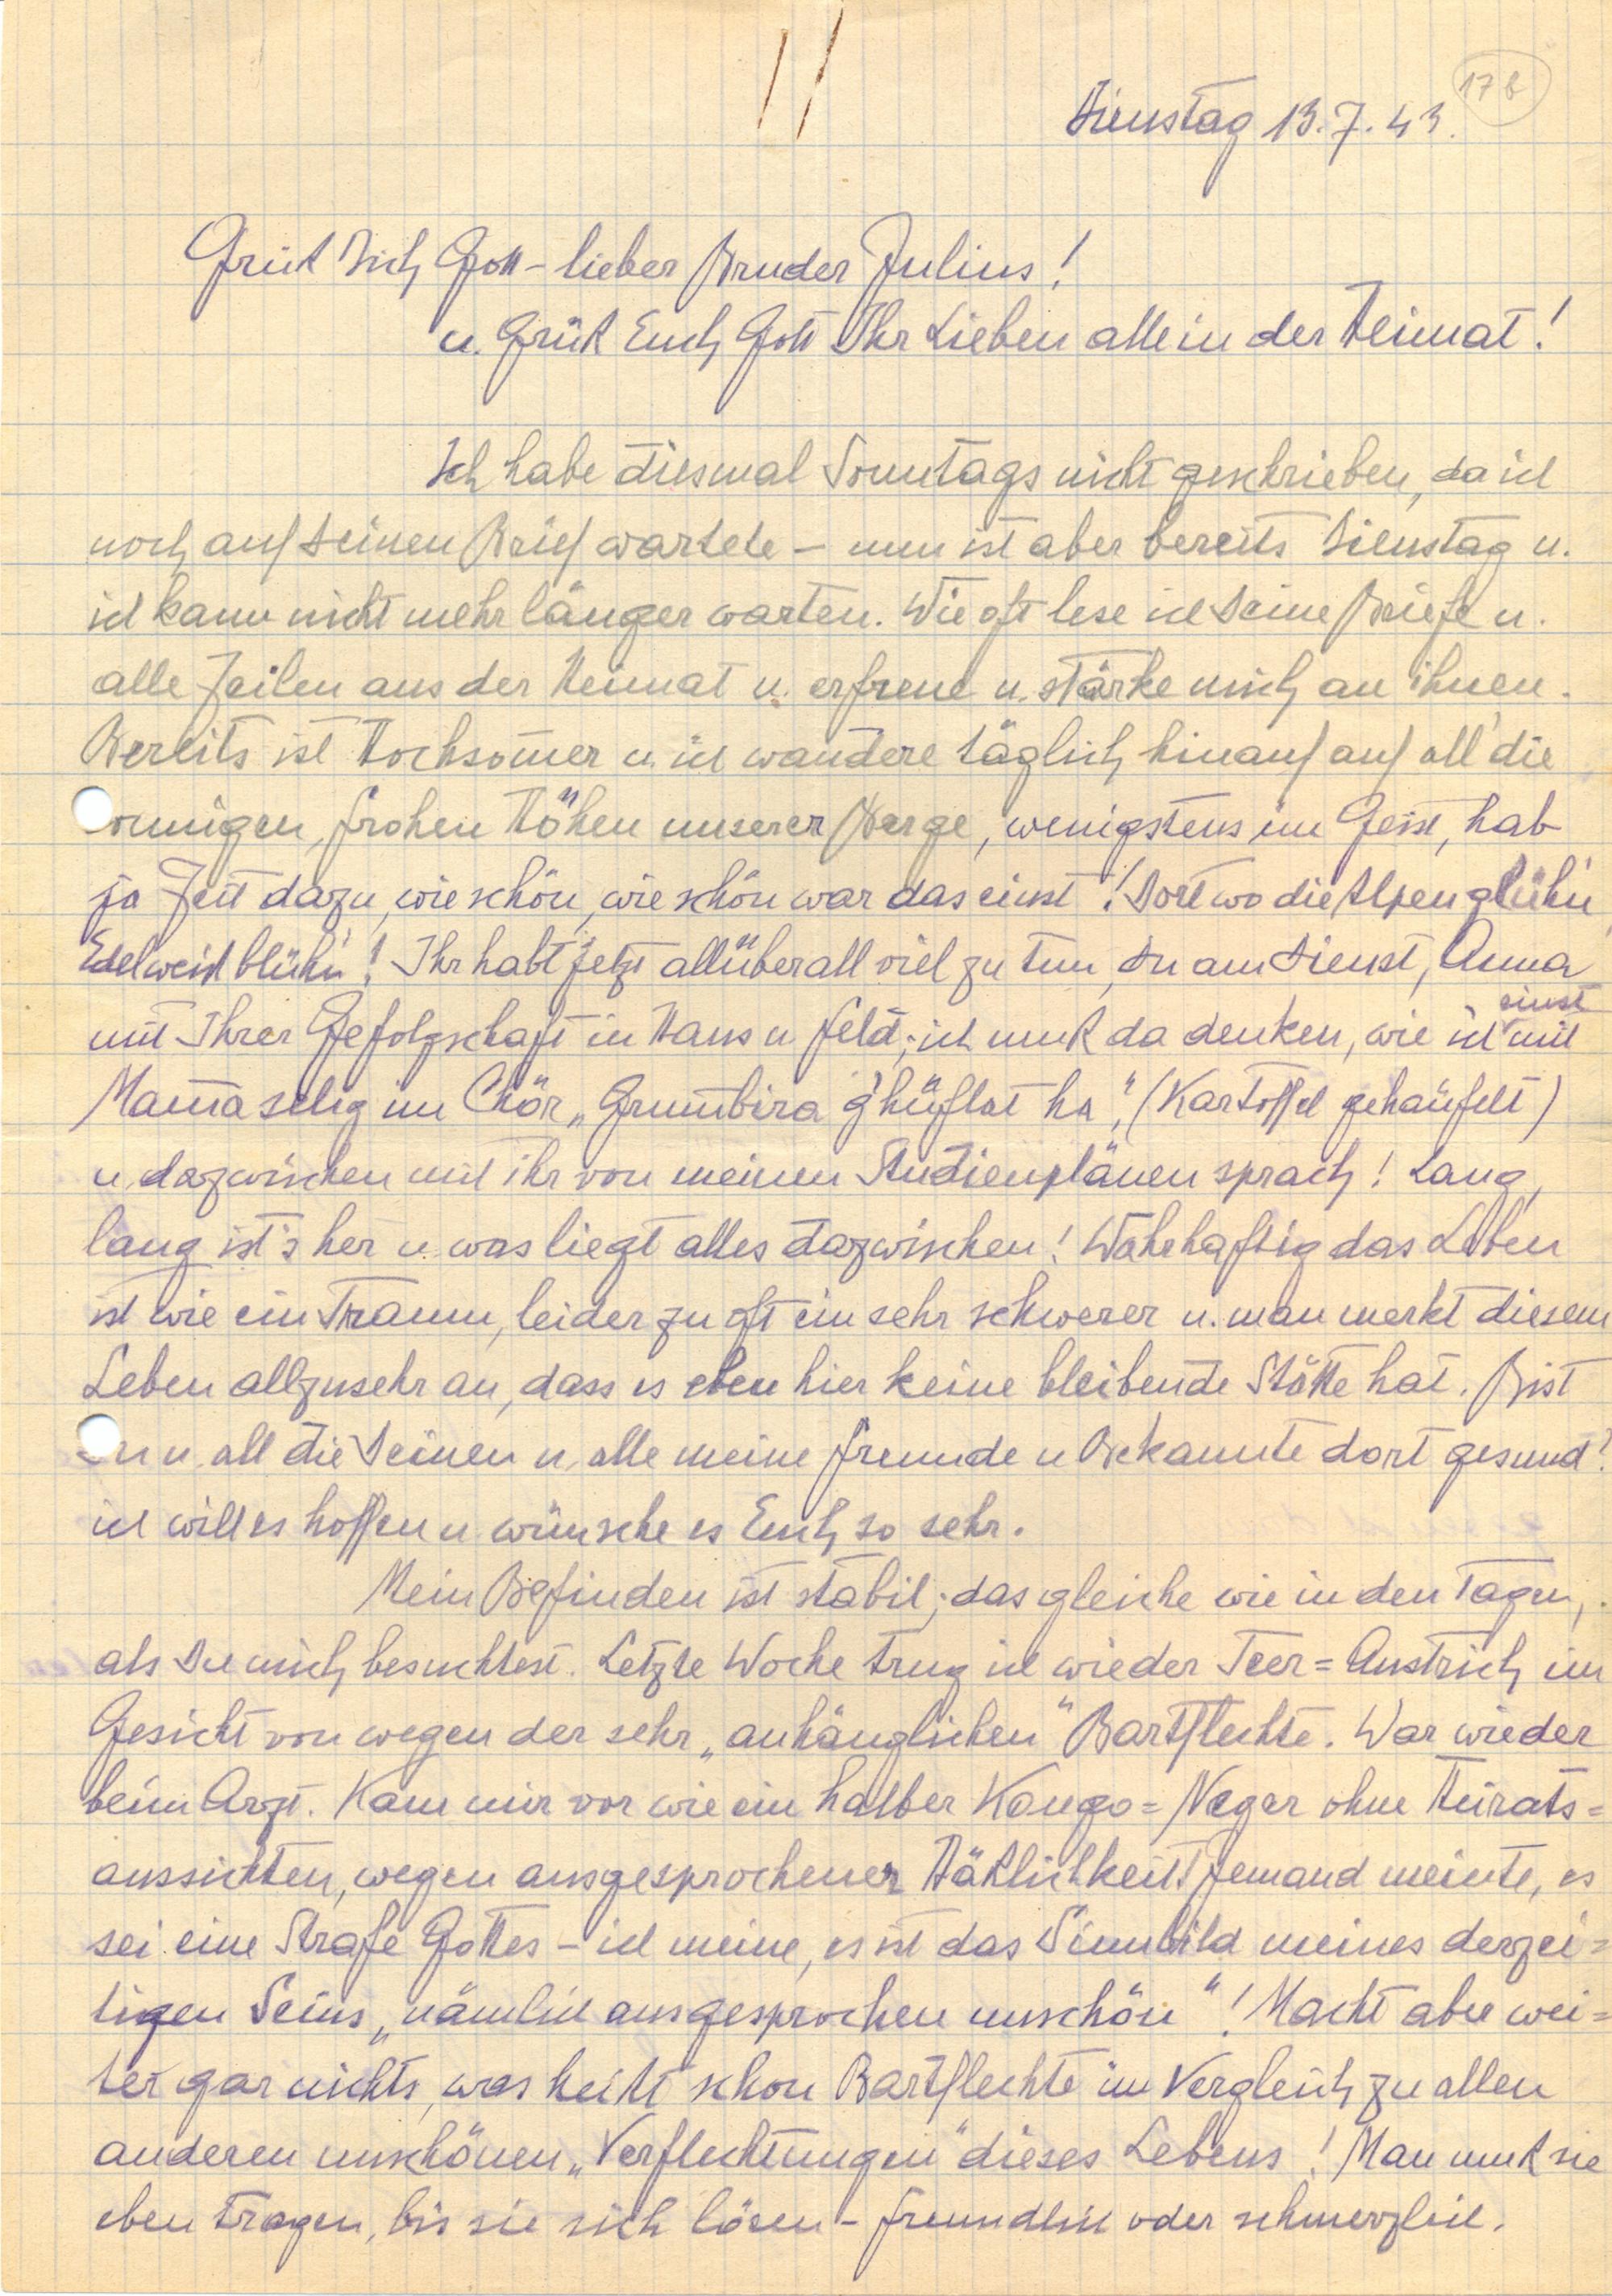 17b
Dienstag 13.7.43.
Grüß Dich Gott – lieber Bruder Julius!
u. Grüß Euch Gott Ihr Lieben alle in der Heimat!
Ich habe diesmal Sonntags nicht geschrieben, da ich
noch auf Deinen Brief wartete – nun ist aber bereits Dienstag u.
ich kann nicht mehr länger warten. Wie oft lese ich Deine Briefe u.
alle Zeilen aus der Heimat u. erfreue u. stärke mich an ihnen.
Bereits ist Hochsom̄er u. ich wandere täglich hinauf auf all' die
sonnigen, frohen Höhen unserer Berge, wenigstens im Geist, hab
ja Zeit dazu, wie schön, wie schön war das einst! Dort wo die Alpen glüh'n
Edelweiß blüh'n! Ihr habt jetzt allüberall viel zu tun, Du am Dienst, Anna
mit Ihrer Gefolgschaft in Haus u. Feld; ich muß da denken, wie ich einst mit
Mam̄a selig im Chör „Grum̄bira g'hüflat ha", (Kartoffel gehäufelt)
u. dazwischen mit ihr von meinen Studienplänen sprach! Lang,
lang ist's her u. was liegt alles dazwischen! Wahrhaftig das Leben
ist wie ein Traum, leider zu oft ein sehr schwerer u. man merkt diesem
Leben allzusehr an, dass es eben hier keine bleibende Stätte hat. Bist
Du u. all die Deinen u. alle meine Freunde u. Bekannte dort gesund?
ich will es hoffen u. wünsche es Euch so sehr.
Mein Befinden ist stabil; das gleiche wie in den Tagen,
als Du mich besuchtest. Letzte Woche trug ich wieder Teer=Anstrich im
Gesicht von wegen der sehr „anhänglichen" Bartflechte. War wieder
beim Arzt. Kam mir vor wie ein halber Kongo=Neger ohne Heirats=
aussichten, wegen ausgesprochener Häßlichkeit. Jemand meinte, es
sei eine Strafe Gottes – ich meine, es ist das Sinnbild meines derzei=
tigen Seins „nämlich ausgesprochen unschön"! Macht aber wei=
ter gar nichts, was heißt schon Bartflechte im Vergleich zu allen
anderen unschönen „Verflechtungen" dieses Lebens! Man muß sie
eben tragen, bis sie sich lösen – freundlich oder schmerzlich.